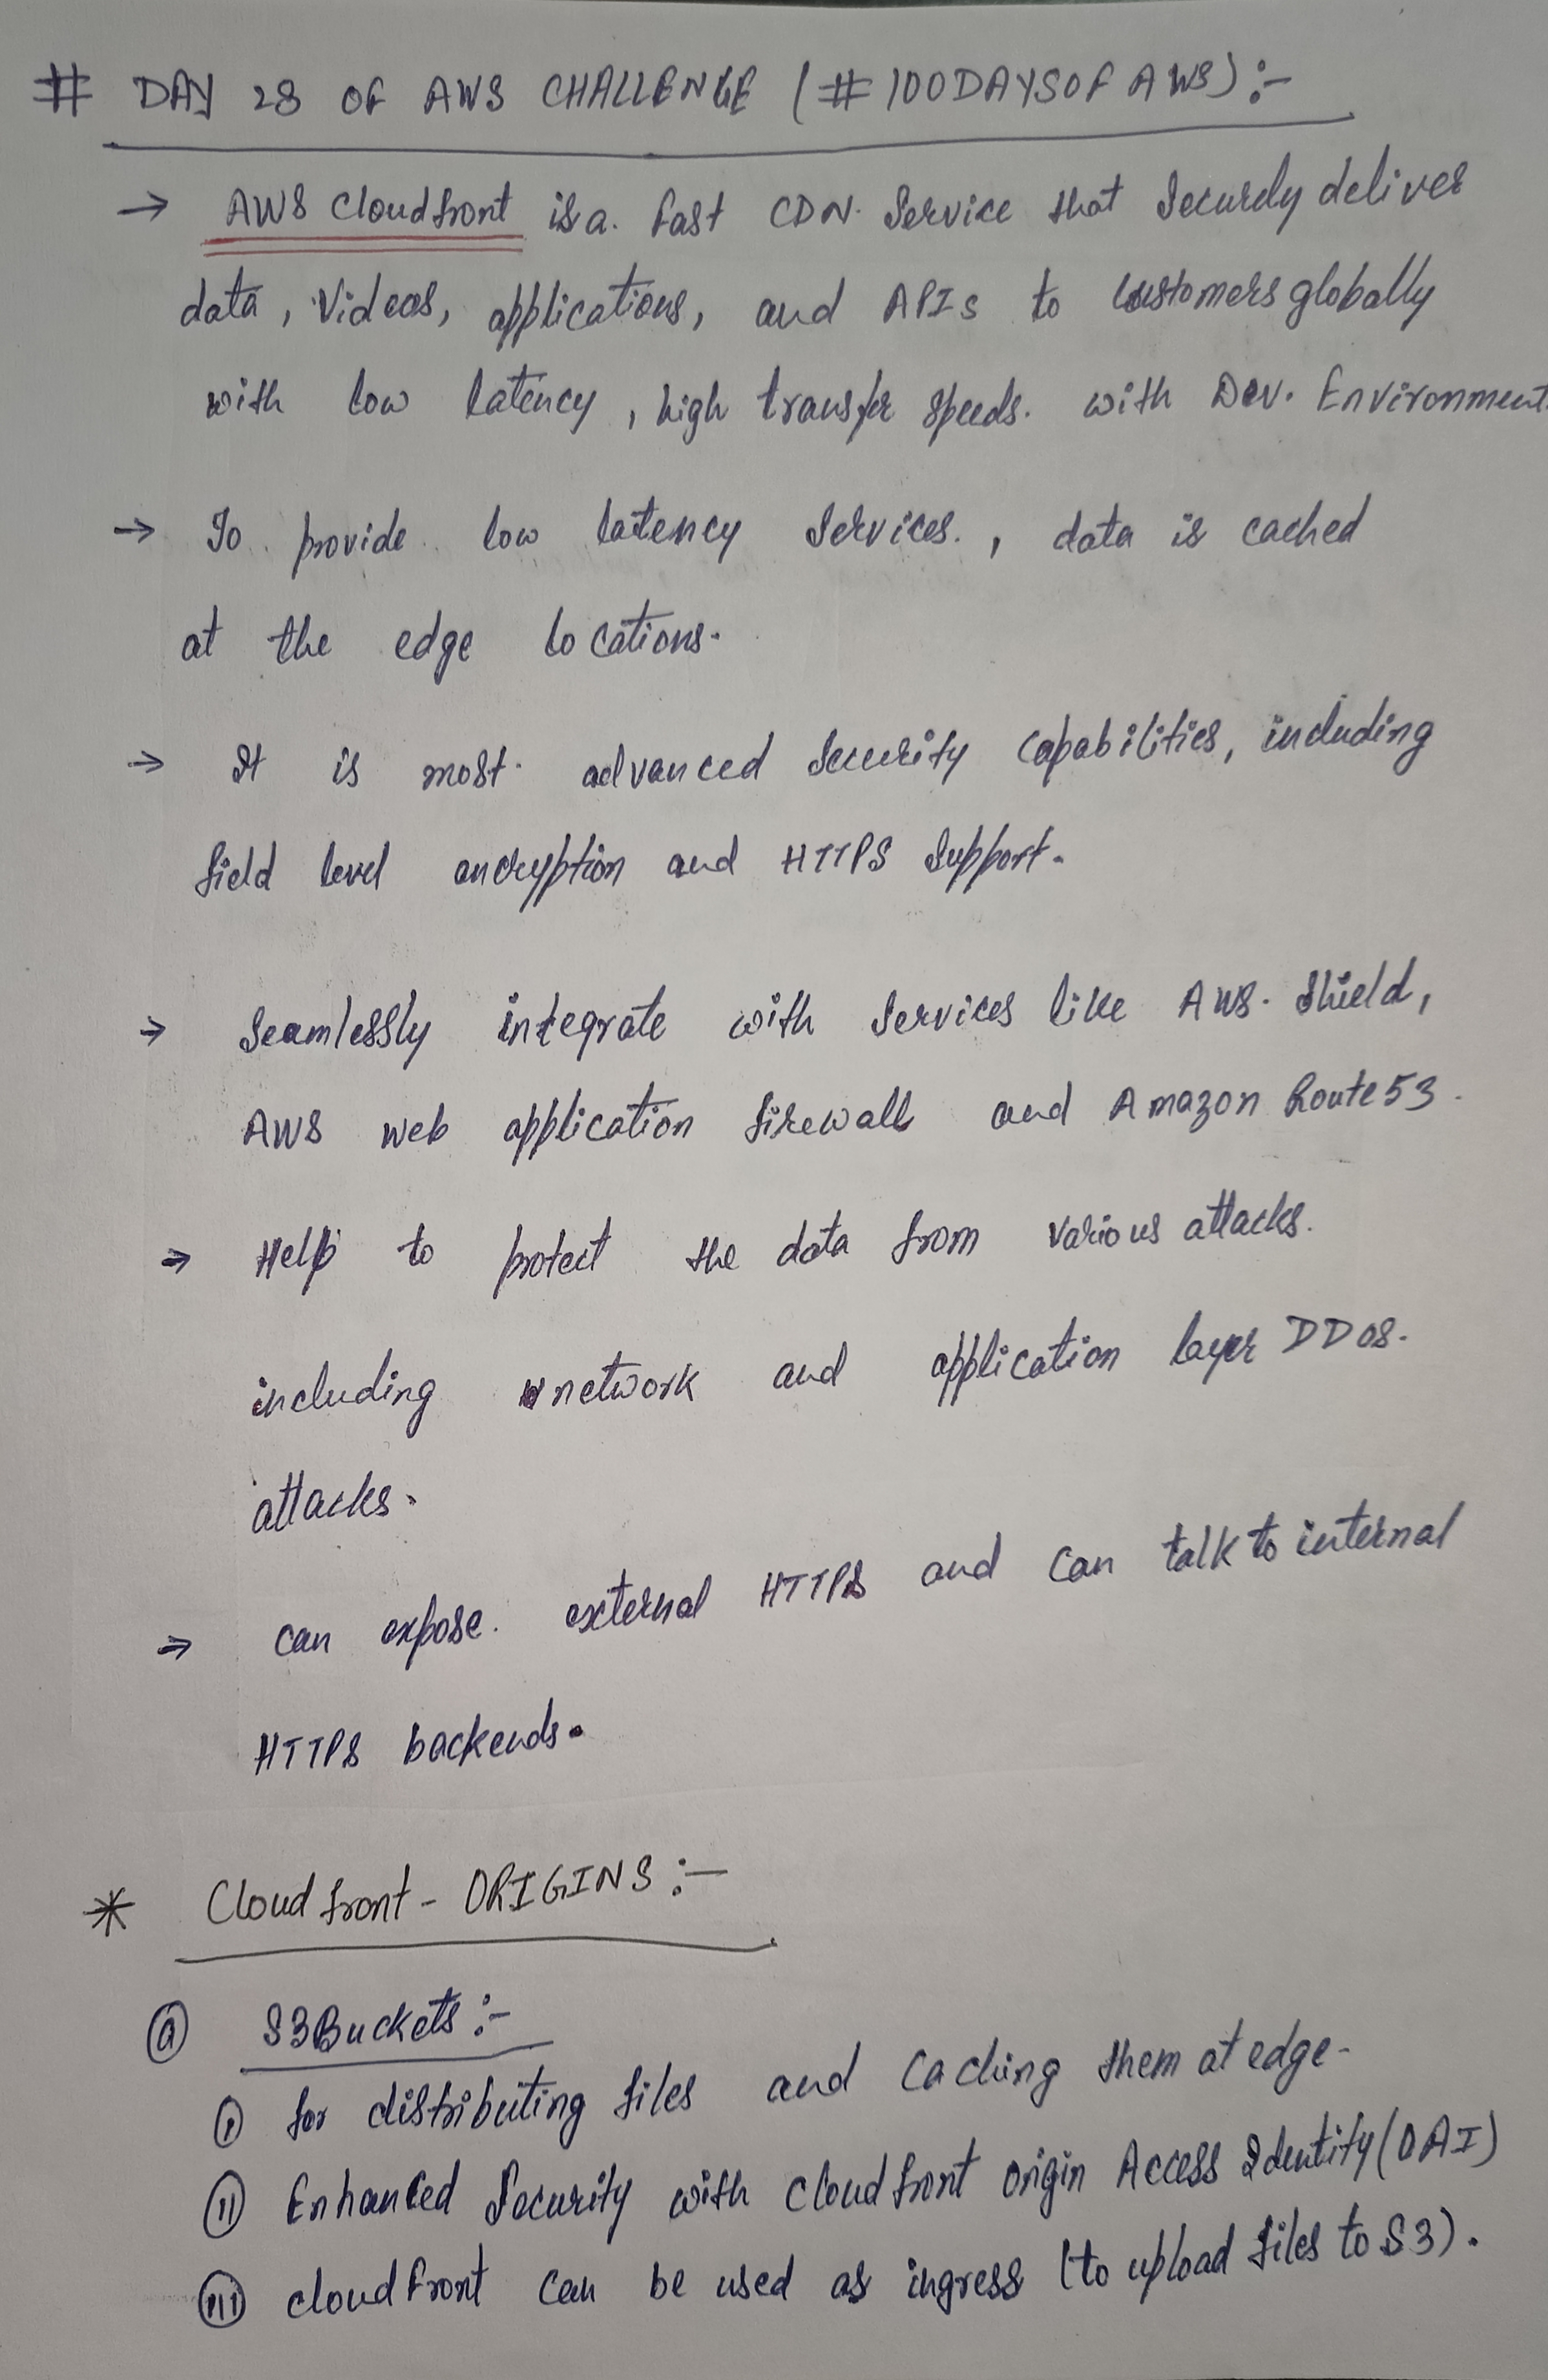 # DAY 28 OF AWS CHALLENGE (#100DAYSOFAWS):-
→ AWS Cloudfront is a. fast CDN. Service that Securely deliver
data, Videos, applications, and APIs to customers globally
with low latency, high transfer speeds. with Dev. Environment.
→ To provide low latency Services., data is cached
at the edge locations.
→ It is most advanced Security Capabilities, including
field level encryption and HTTPS Support.
→ Seamlessly integrate with Services like AWS. Shield,
AWS web application firewall and Amazon Route53.
→ Help to protect the data from various attacks.
including network and application layer DDOS.
attacks.
→ can expose. external HTTPS and can talk to internal
HTTPS backends.
* Cloudfront - ORIGINS:-
ⓐ S3Buckets:-
(i) for distributing files and Caching them at edge.
(ii) Enhanced Security with cloudfront origin Access Identity (OAI)
(iii) cloudfront can be used as ingress (to upload files to S3).